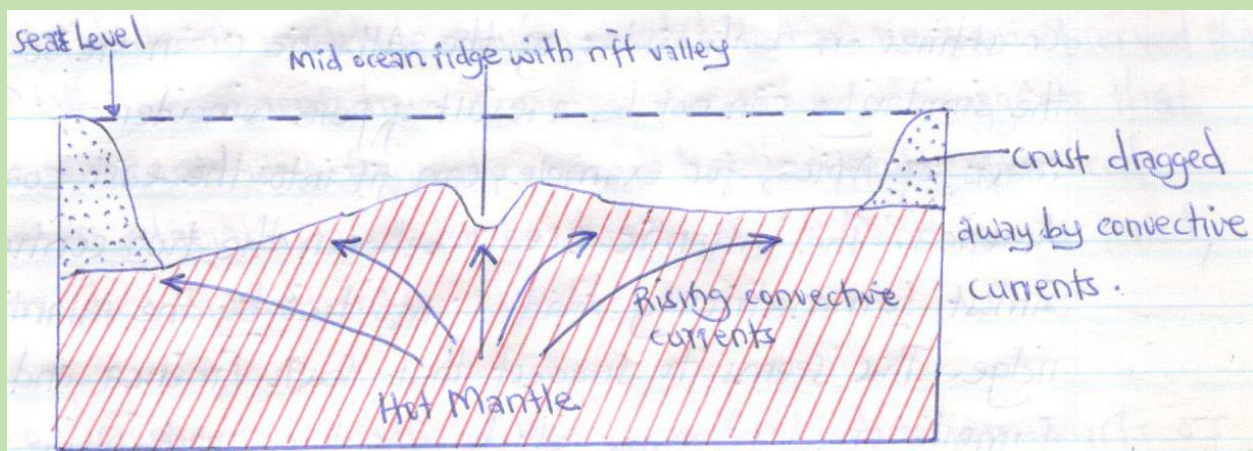 Sea Level
Mid ocean ridge with rift valley
crust dragged
away by convective
currents.
Rising convective
currents
Hot Mantle